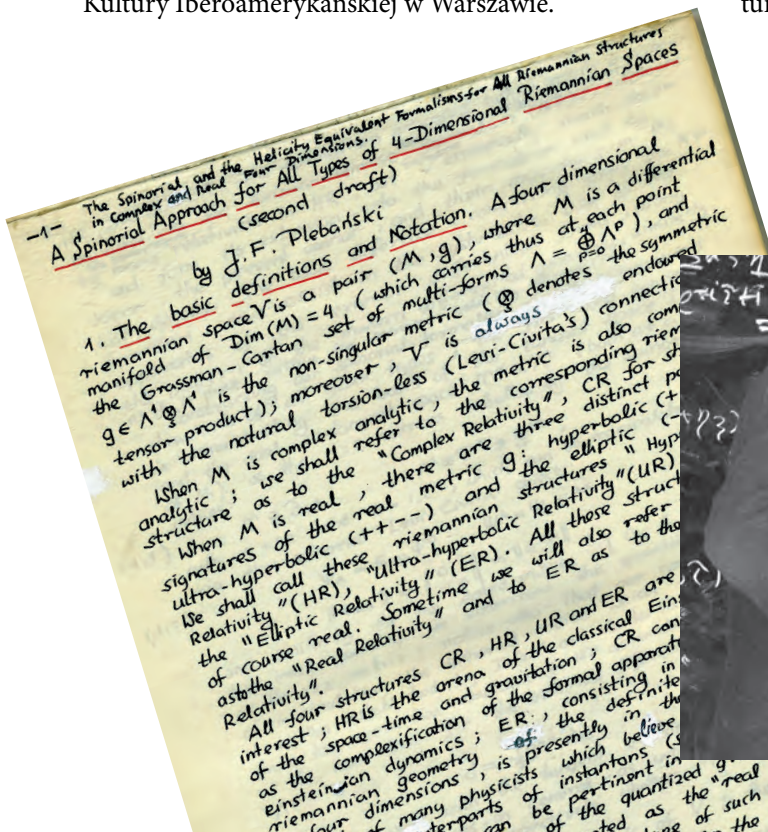 Kultury Iberoamerykańskiej w Warszawie.
tur
The Spinorial and the Helicity Equivalent Formalisms for All Riemannian Structures
in Complex and Real Four Dimensions.
-1-
A Spinorial Approach for All Types of 4-Dimensional Riemannian Spaces
(second draft)
by J.F. Plebański
1. The basic definitions and Notation. A four dimensional
riemannian space V is a pair (M,g), where M is a differential
manifold of Dim(M)=4 (which carries thus at each point
the Grassman-Cartan set of multi-forms Λ = ⊕ Λᵖ), and
p=0
g ∈ Λ¹ ⊗ Λ¹ is the non-singular metric (⊗ denotes the symmetric
s
tensor product); moreover, V is always endowed
with the natural torsion-less (Levi-Civita's) connectio
When M is complex analytic, the metric is also com
analytic; we shall refer to the corresponding riem
structure as to the "Complex Relativity", CR for sh
When M is real, there are three distinct po
signatures of the real metric g: hyperbolic (+
ultra-hyperbolic (++--) and the elliptic (
We shall call these riemannian structures "Hyp
Relativity" (HR), "Ultra-hyperbolic Relativity" (UR)
the "Elliptic Relativity" (ER). All these struct
of course real. Sometime we will also refer
as to the "Real Relativity" and to ER as to the
Relativity".
All four structures CR, HR, UR and ER are
interest; HR is the arena of the classical Eins
of the space-time and gravitation; CR can
as the complexification of the formal apparatu
einsteinian dynamics; ER, consisting in
riemannian geometry of the definite
four dimensions, is presently in th
of many physicists which believe
terparts of instantons (s
can be pertinent in
of the quantized g
ted as the "real
of such
the